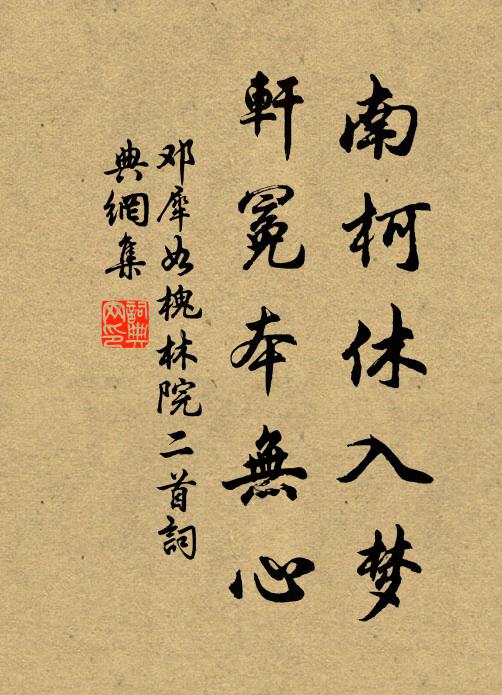 南柯休入梦
軒冕本無心
邓犀如槐林院二首詞
典網集
詞典网印